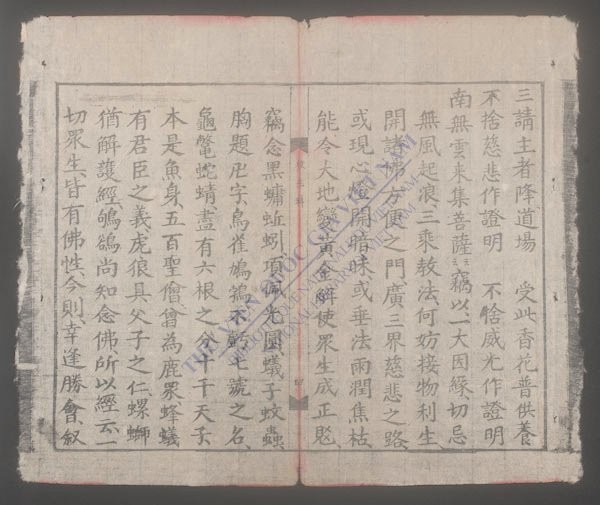 三請主者降道場 受此香花普供養
不捨慈悲作證明 不捨威光作證明
南無雲來集菩薩 竊以一大因緣切忌
無風起浪三乘教法何妨接物利生
開諸佛方便之門廣三界慈悲之路
或現心燈開暗昧或垂法雨潤焦枯
能令大地變黃金解使眾生成正覺
竊念黑蟰蚯蚓項佩光圓蟻子蚊蟲
胸題卍字鳥雀鳩鴿不虧七號之名
龜鱉蛇蜻盡有六根之分千千天子
本是魚身五百聖僧曾為鹿眾蜂蟻
有君臣之義虎狼具父子之仁螺螄
猶解護經鴝鵒尚知念佛所以經云一
切眾生皆有佛性今則幸逢勝會叙
THƯ VIỆN QUỐC GIA VIỆT NAM